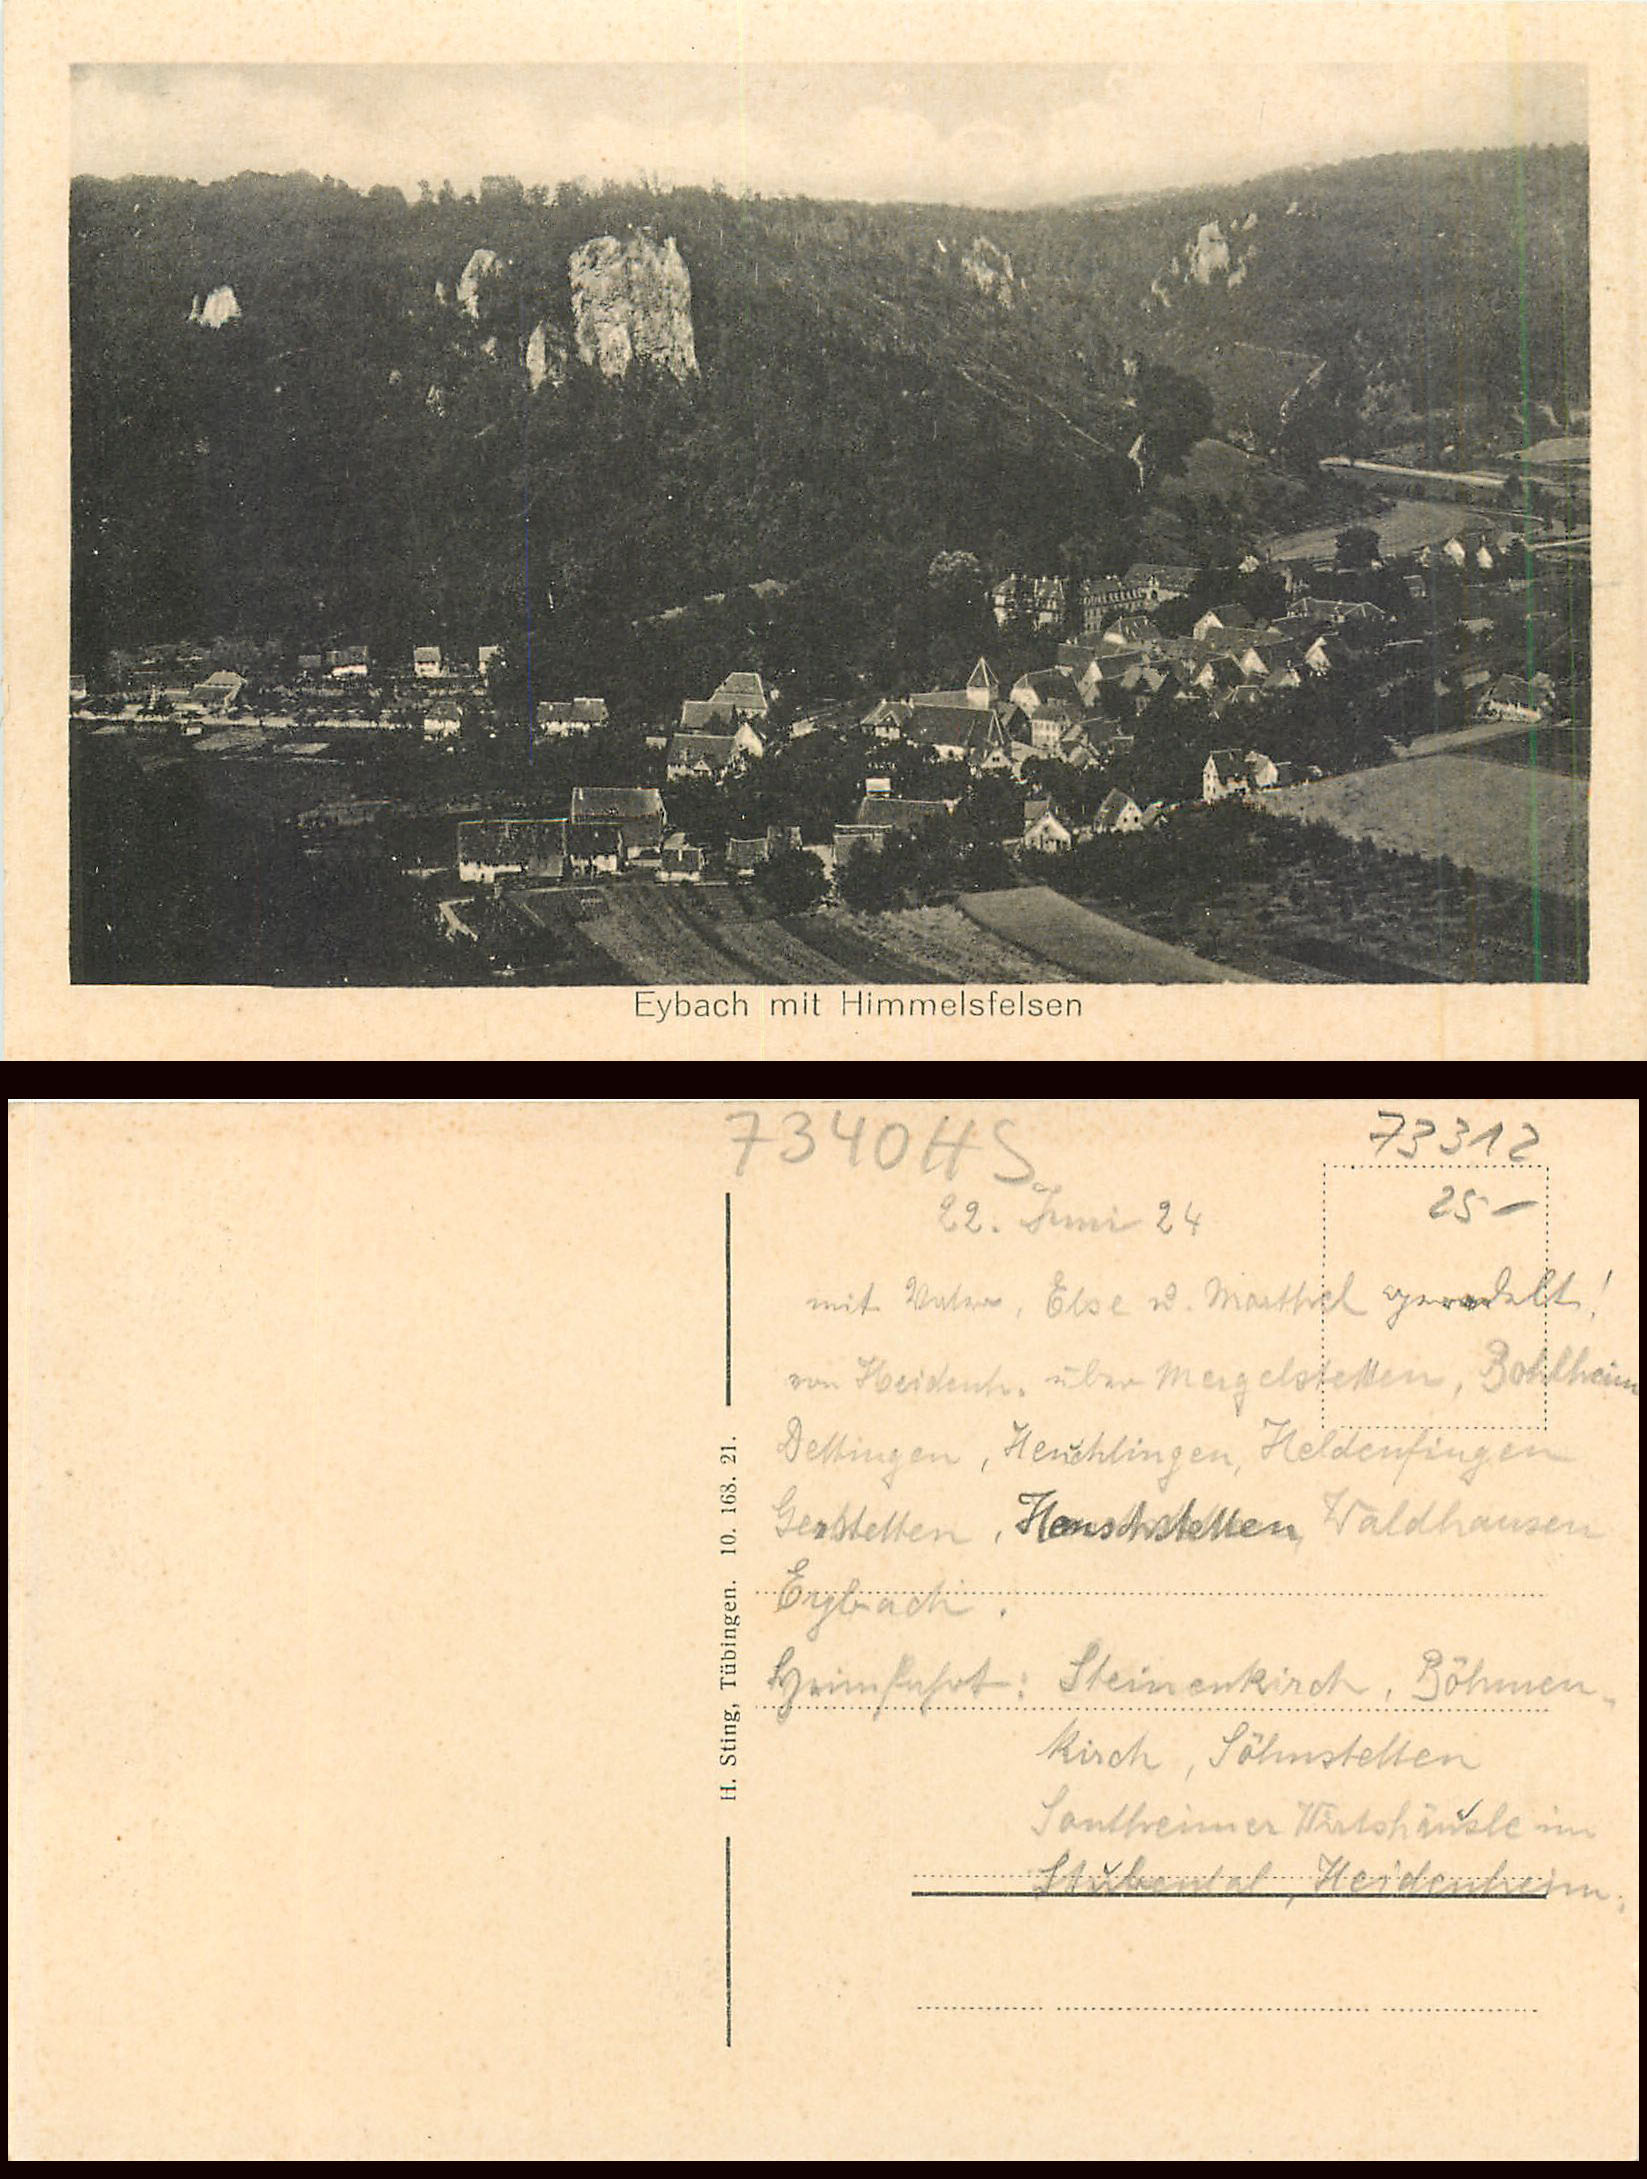 Eybach mit Himmelsfelsen
7340HS
73312
25-
22. Juni 24
mit Vater, Else u. Marthel geradelt!
von Heidenh. über Mergelstetten, Bohlheim
Dettingen, Heuchlingen, Heldenfingen
Gerstetten, Waldhausen
Eybach.
Heimfahrt: Steinenkirch, Böhmen-
kirch, Söhnstetten
Sontheimer Wirtshäusle im
Stubental, Heidenheim.
H. Sting, Tübingen. 10. 168. 21.